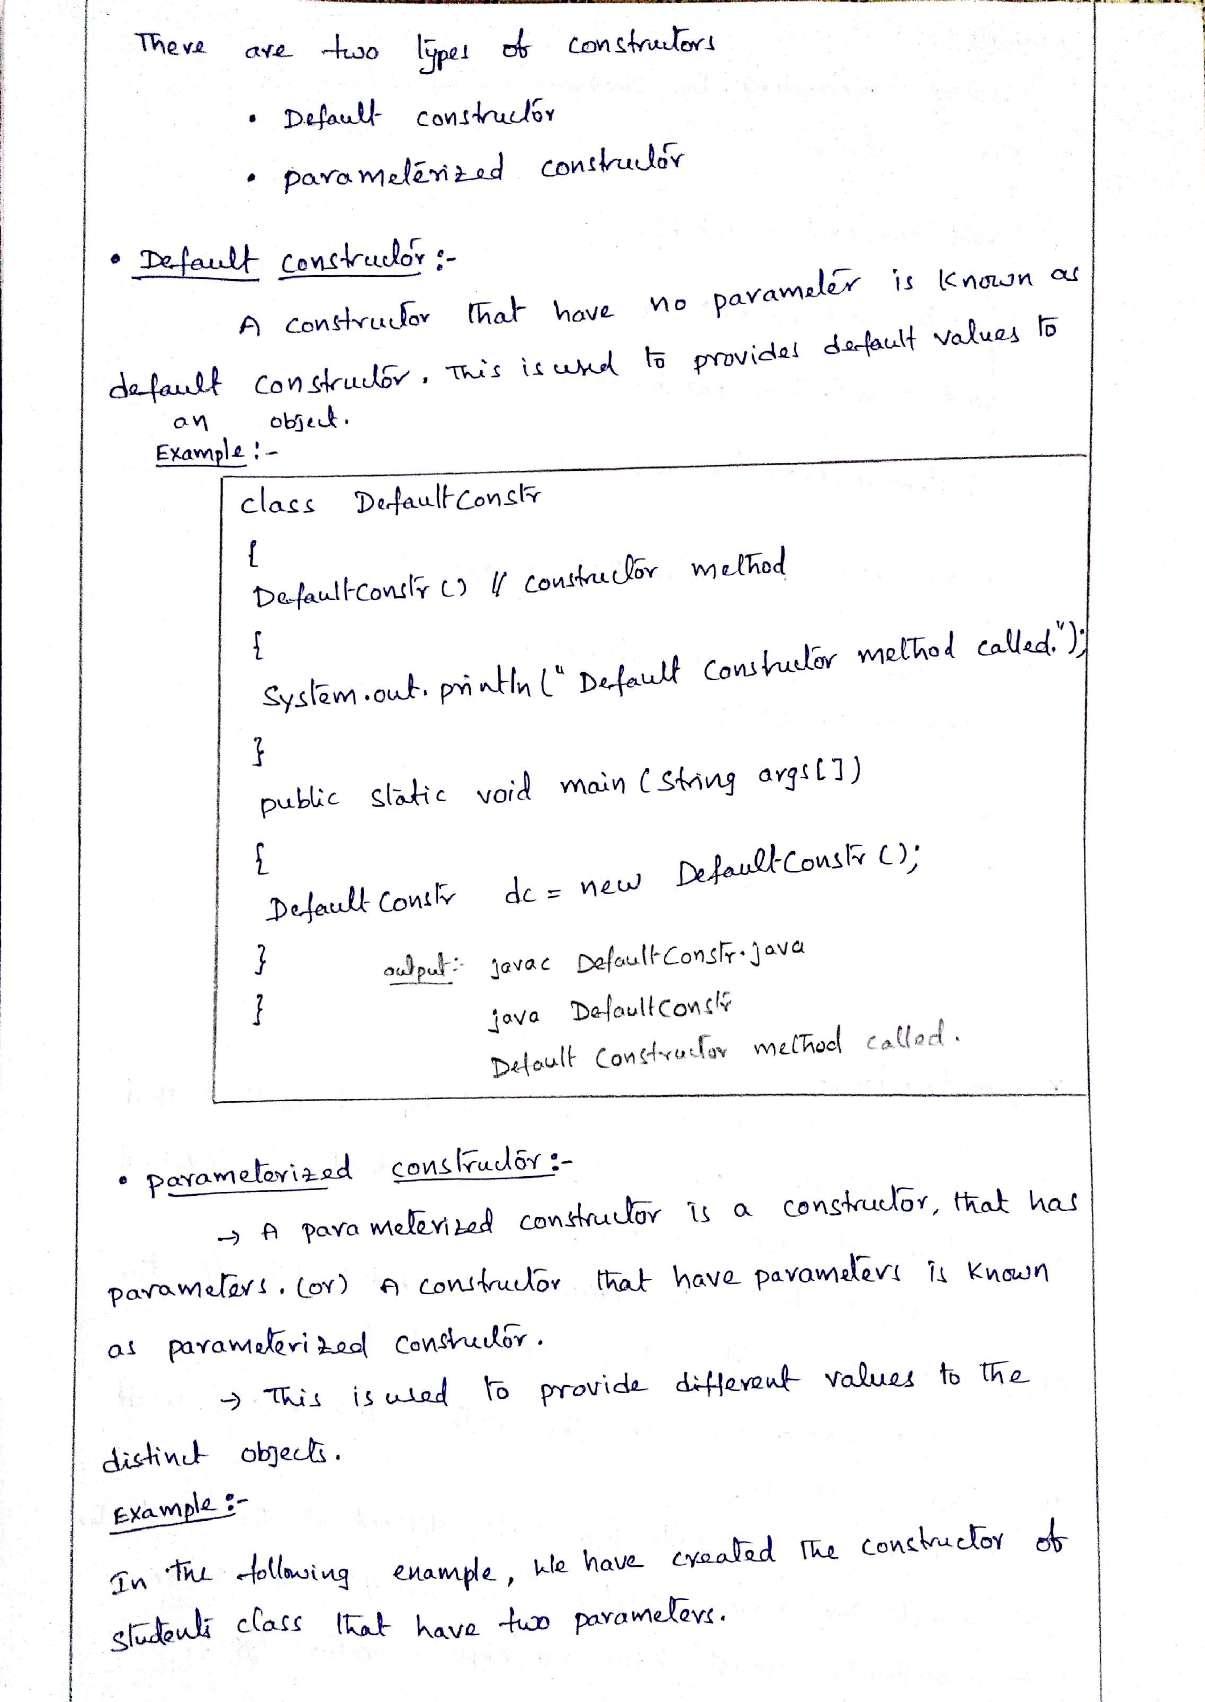 There are two types of constructors
• Default constructor
• parameterized constructor
• Default constructor :-
A constructor that have no parameter is known as
default constructor. This is used to provides default values to
an object.
Example :-
class DefaultConstr
{
DefaultConstr () // constructor method
{
System.out.println (" Default Constructor method called.");
}
public static void main (String args[])
{
DefaultConstr dc = new DefaultConstr ();
}
output:- javac DefaultConstr.java
}
java DefaultConstr
Default Constructor method called.
• parameterized constructor :-
→ A parameterized constructor is a constructor, that has
parameters. (or) A constructor that have parameters is known
as parameterized constructor.
→ This is used to provide different values to the
distinct objects.
Example :-
In the following example, we have created the constructor of
students class that have two parameters.